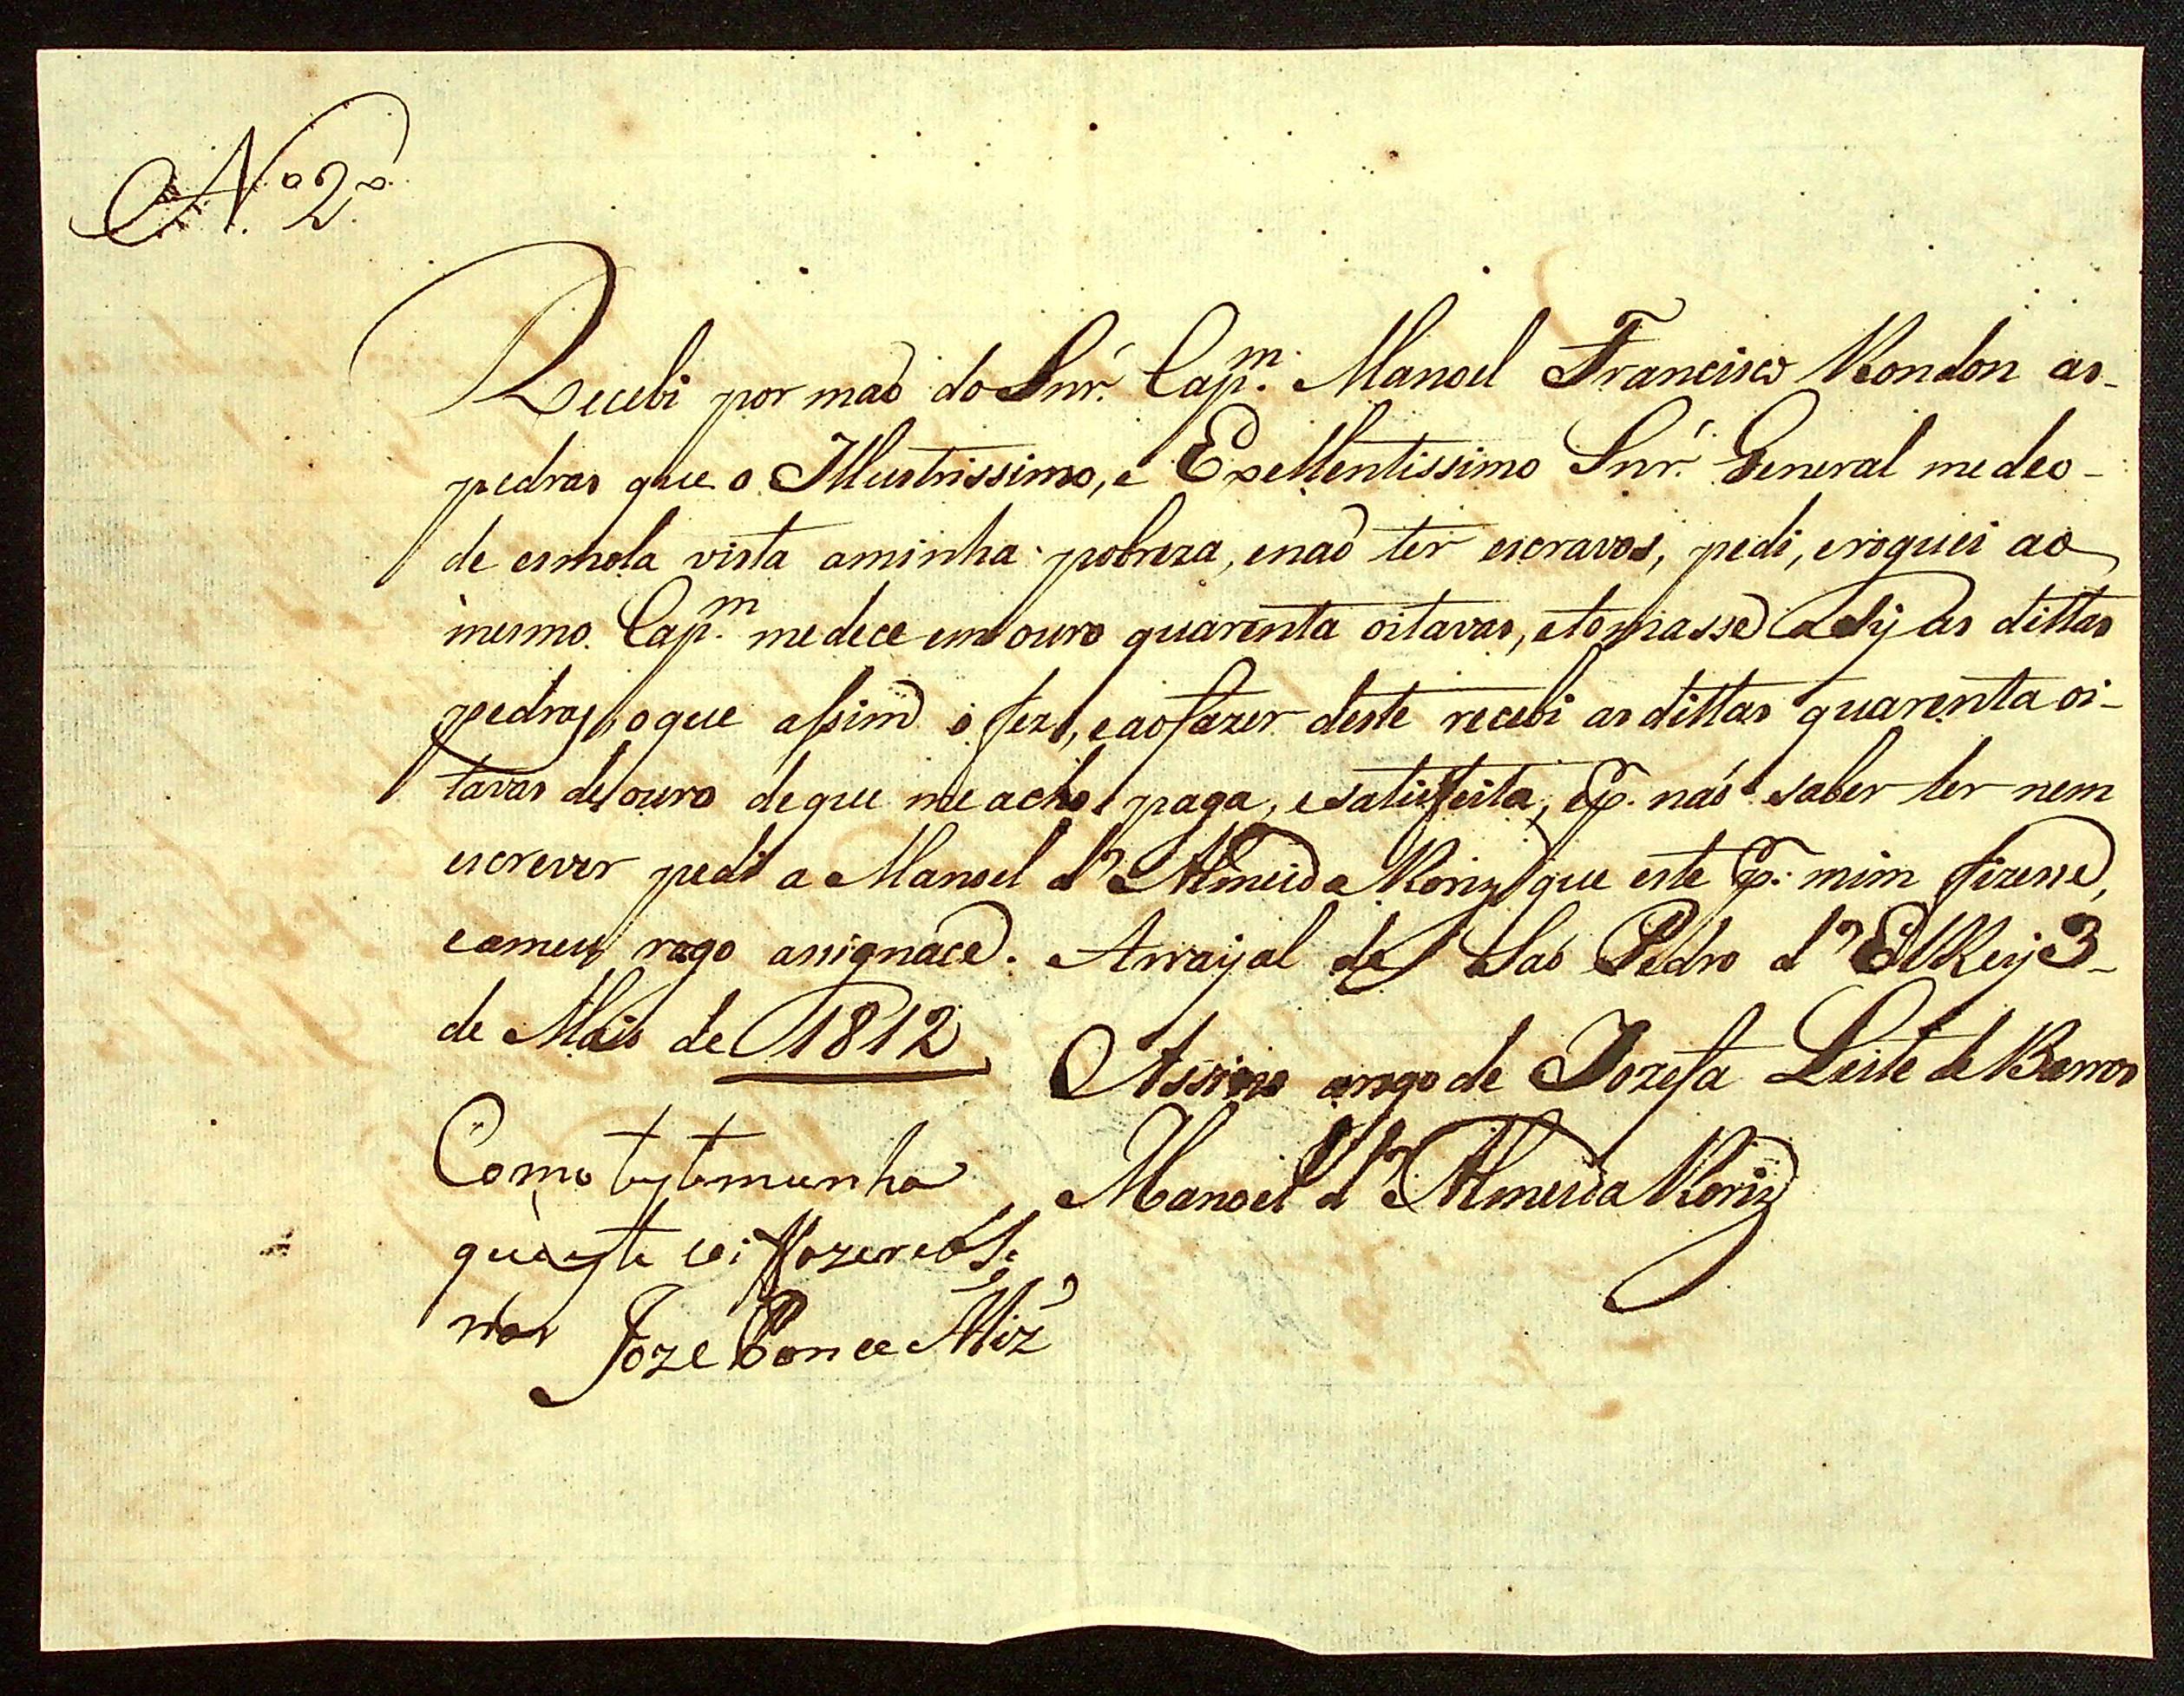 N.º 2º
Recebi por maõ do Snr. Capᵐ. Manoel Francisco Rondon as
pedras que o Illustrissimo, e Exellentissimo Snr. General me deo
de esmola vista aminha pobreza, enaõ ter escravos, pedi, eroguei ao
mesmo Capᵐ. medece em ouro quarenta oitavas, etomasse asy as dittas
pedras, oque assim o fez, eaofazer deste recebi asdittas quarenta oi-
tavas de ouro deque me acho paga, esatisfeita, e p. naõ saber ler nem
escrever pedi a Manoel d' Almeida Roriz que este p. mim fizesse,
eameu rogo assignace. Arrayal de Saõ Pedro d' ElRey 3
de Maio de 1812
Assino arogo de Jozefa Leite de Barros
Manoel d' Almeida Roriz
Como tystimunha
que este vi fazer e
Joze Ponce Miz